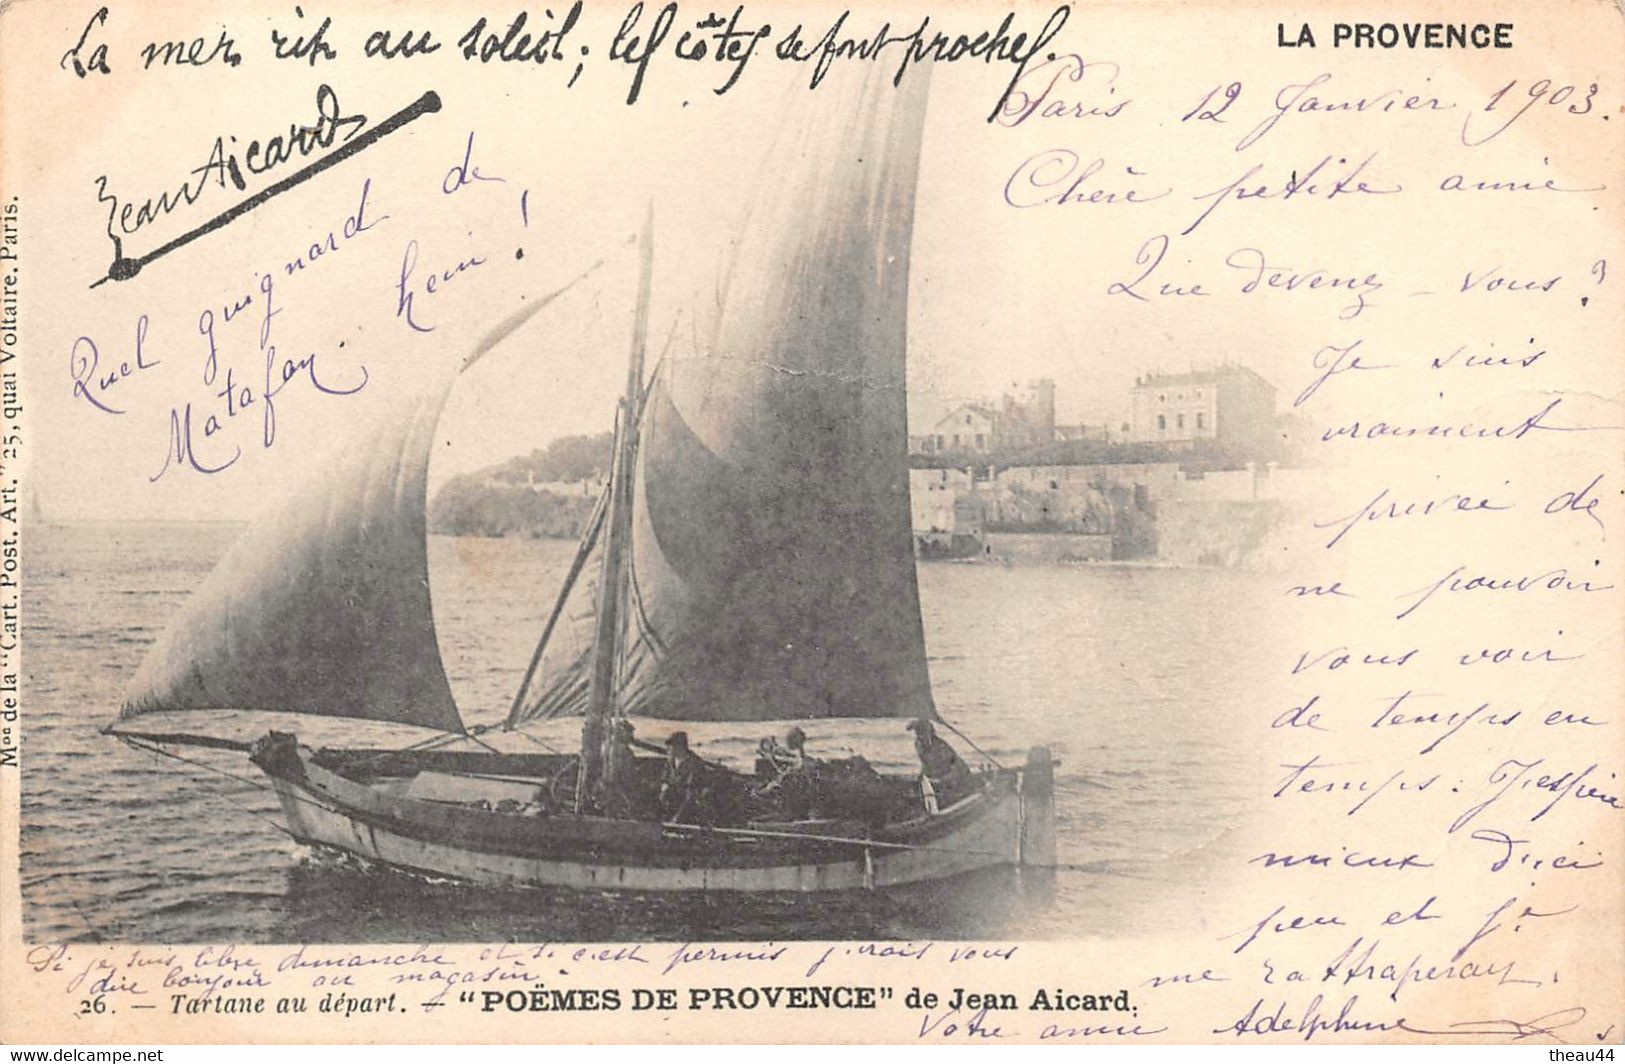 La mer rit au soleil; les côtes se font proches.
Jean Aicard
LA PROVENCE
Paris 12 Janvier 1903.
Chère petite amie
Que devenez-vous?
Je suis
vraiment
privée de
ne pouvoir
vous voir
de temps en
temps. J'espère
mieux d'ici
peu et je
me rattraperai.
Votre amie Adelphine
Quel guignard de
Matafay. hein!
Si je suis libre dimanche et si c'est permis j'irais vous
dire bonjour au magasin.
26. — Tartane au départ. — "POËMES DE PROVENCE" de Jean Aicard.
Mon de la "Cart. Post. Art." 25, quai Voltaire. Paris.
theau44